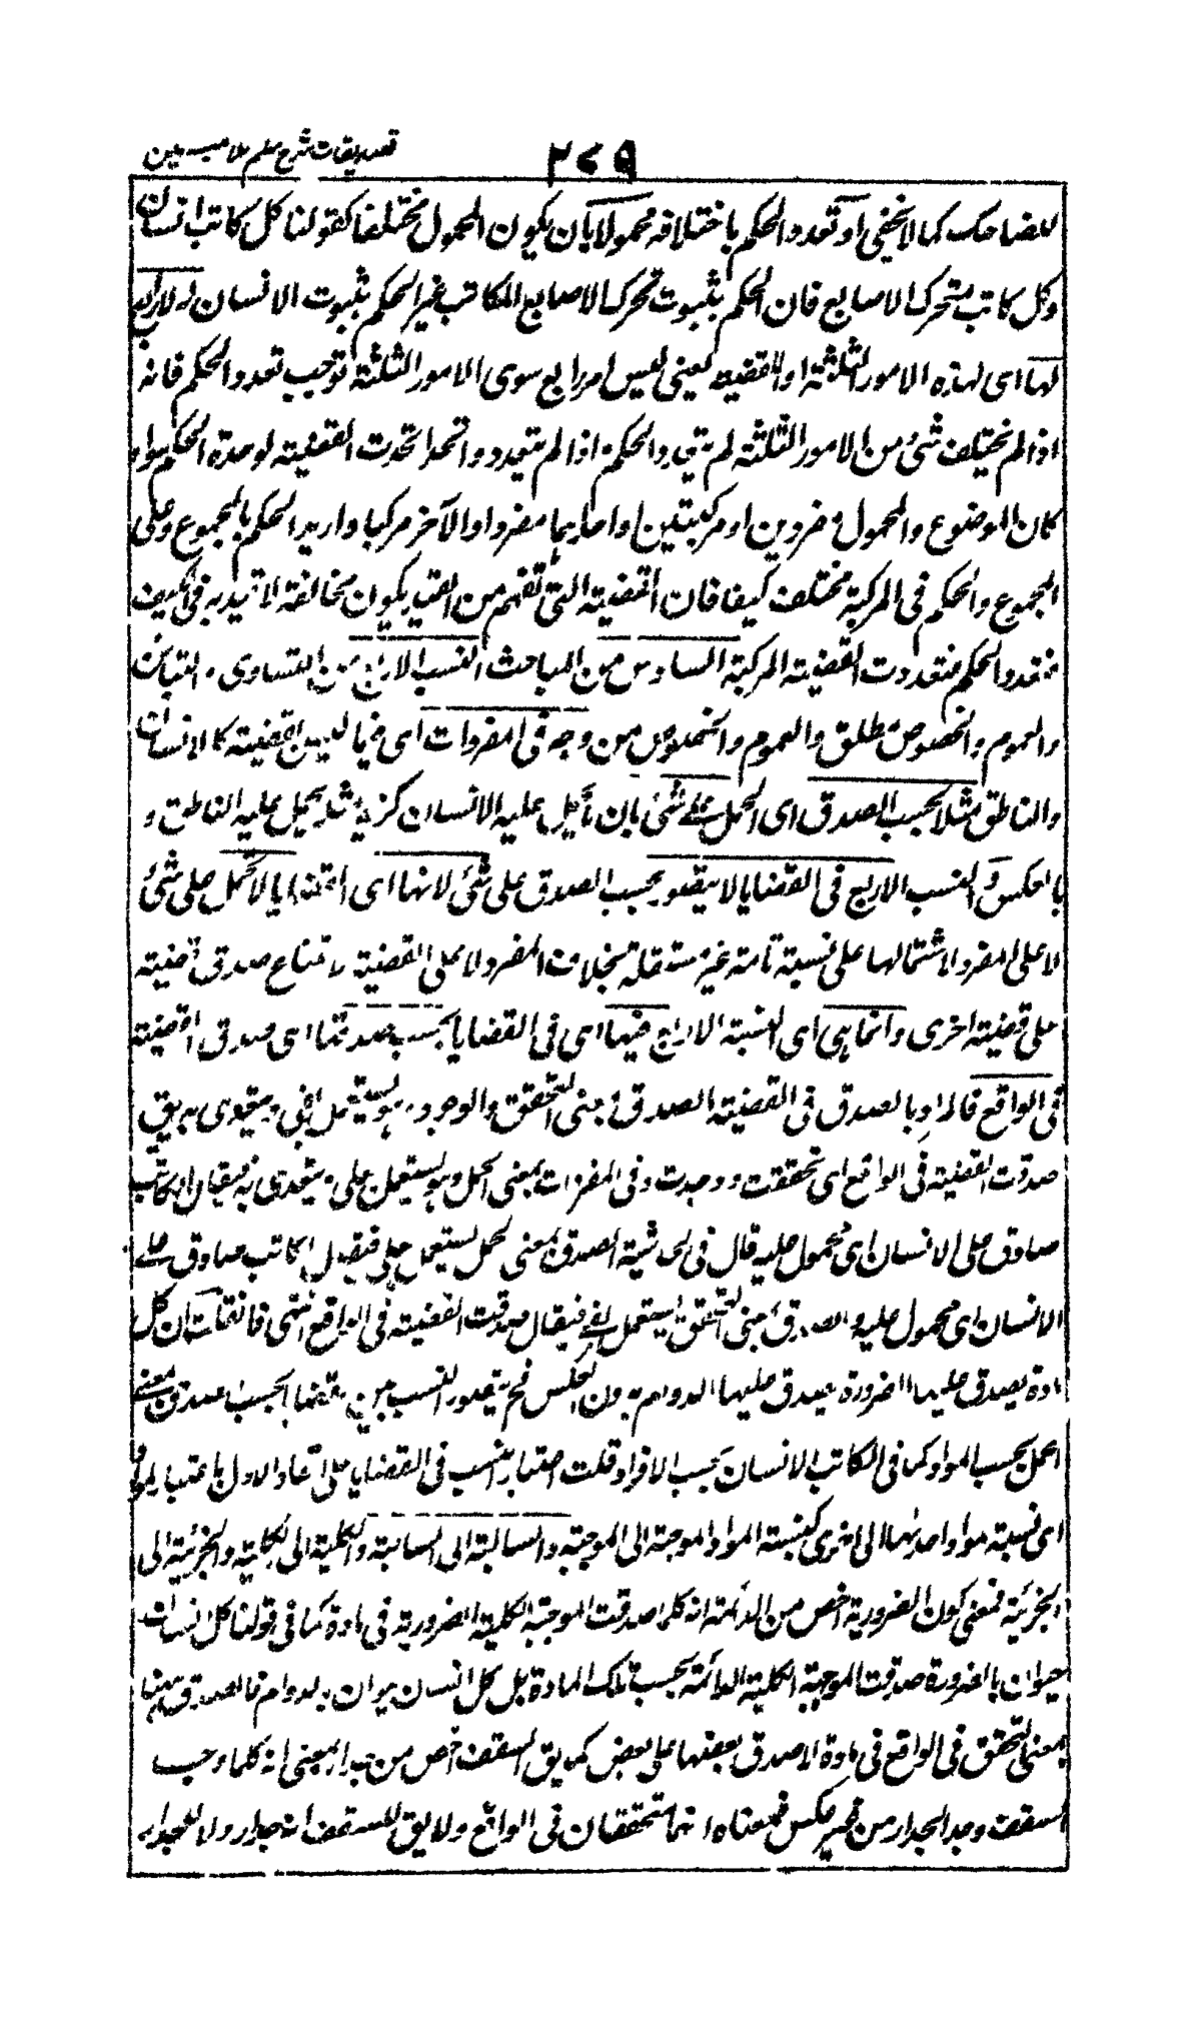 تصديقات شرح سلم ملا مبين
٢٧٩
للضاحك كما لا يخفى او تعدد الحكم باختلافه محمولا بان يكون المحمول مختلفا كقولنا كل كاتب انسان
وكل كاتب متحرك الاصابع فان الحكم بثبوت تحرك الاصابع للكاتب غير الحكم بثبوت الانسان له لا رابع
لها اى لهذه الامور الثلثة او للقضية يعنى ليس امر رابع سوى الامور الثلثة توجب تعدد الحكم فانه
اذا لم يختلف شئ من الامور الثلثة لم يتعدد الحكم واذا لم يتعدد واتحد اتحدت القضية لوحدة الحكم سواء
كان الموضوع والمحمول مفردين او مركبتين او احدهما مفردا والآخر مركبا واريد الحكم بالمجموع وعلى
المجموع والحكم فى المركبة مختلف كيفا فان القضية التى تفهم من القيد يكون مخالفة لما قيد به فى الكيف
فتعدد الحكم فتعددت القضية المركبة السادس من المباحث النسب الاربع من التساوى والتباين
والعموم والخصوص مطلق والعموم والخصوص من وجه فى المفردات اى فيما ليس بقضية كالانسان
والناطق مثلا بحسب الصدق اى الحمل على شئ بان يحمل عليه الانسان كزيد مثلا يحمل عليه الناطق و
بالعكس و النسب الاربع فى القضايا لا يتصور بحسب الصدق على شئ لانها اى القضايا لا تحمل على شئ
لا على المفرد لاشتمالها على نسبة تامة غير مستقلة بخلاف المفرد ولا على القضية لامتناع صدق قضية
على قضية اخرى وانما هى اى النسبة الاربع فيها اى فى القضايا بحسب صدقها اى صدق القضية
فى الواقع فالمراد بالصدق فى القضية الصدق بمعنى التحقق والوجود وهو يستعمل بفى ويتعدى به يق
صدقت القضية فى الواقع اى تحققت ووجدت وفى المفردات بمعنى الحمل وهو يستعمل بعلى ويتعدى به فيقال الكاتب
صادق على الانسان اى محمول عليه قال فى الحاشية الصدق بمعنى الحمل يستعمل بعلى فيقال الكاتب صادق على
الانسان اى محمول عليه والصدق بمعنى التحقق يستعمل بفى فيقال صدقت القضية فى الواقع انتهى فان قلت ان كل
مادة يصدق عليها الضرورة يصدق عليها الدوام بدون العكس فح يتصور النسب بين القضايا بحسب صدق بمعنى
الحمل بحسب المواد كما فى الكاتب الانسان بحسب الافراد قلت اعتبار النسب فى القضايا على انحاء الاول باعتبار المواد
اى نسبة مواد احدیهما الى اخرى كنسبة المواد الموجبة الى الموجبة والسالبة الى السالبة والكلية الى الكلية والجزئية الى
الجزئية فمعنى كون الضرورية اخص من الدائمة انه كلما صدقت الموجبة الكلية الضرورية فى مادة كما فى قولنا كل انسان
حيوان بالضرورة صدقت الموجبة الكلية الدائمة بحسب تلك المادة بل كل انسان حيوان بالدوام فالصدق ههنا
بمعنى التحقق فى الواقع فى مادة لا صدق بعضها على بعض كما يق السقف اخص من جدار بمعنى انه كلما وجد
السقف وجد الجدار من غير عكس فمعناه انهما تحققان فى الواقع ولا يق للسقف انه جدار ولا للجدار